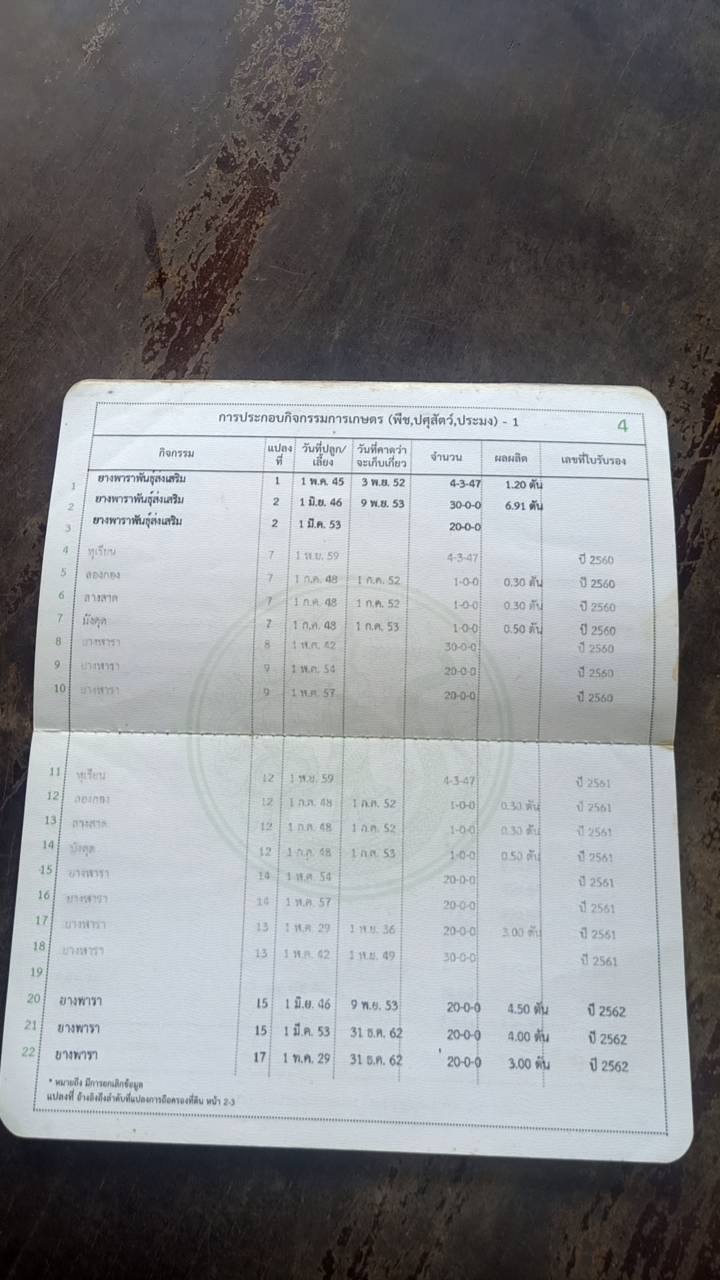 การประกอบกิจกรรมการเกษตร (พืช,ปศุสัตว์,ประมง) - 1 4
กิจกรรม แปลงที่ วันที่ปลูก/เลี้ยง วันที่คาดว่าจะเก็บเกี่ยว จำนวน ผลผลิต เลขที่ใบรับรอง
1 ยางพาราพันธุ์ส่งเสริม 1 1 พ.ค. 45 3 พ.ย. 52 4-3-47 1.20 ตัน
2 ยางพาราพันธุ์ส่งเสริม 2 1 มิ.ย. 46 9 พ.ย. 53 30-0-0 6.91 ตัน
3 ยางพาราพันธุ์ส่งเสริม 2 1 มี.ค. 53 20-0-0
4 ทุเรียน 7 1 พ.ย. 59 4-3-47 ปี 2560
5 ลองกอง 7 1 ก.ค. 48 1 ก.ค. 52 1-0-0 0.30 ตัน ปี 2560
6 ลางสาด 7 1 ก.ค. 48 1 ก.ค. 52 1-0-0 0.30 ตัน ปี 2560
7 มังคุด 7 1 ก.ค. 48 1 ก.ค. 53 1-0-0 0.50 ตัน ปี 2560
8 ยางพารา 8 1 พ.ค. 42 30-0-0 ปี 2560
9 ยางพารา 9 1 พ.ค. 54 20-0-0 ปี 2560
10 ยางพารา 9 1 พ.ค. 57 20-0-0 ปี 2560
11 ทุเรียน 12 1 พ.ย. 59 4-3-47 ปี 2561
12 ลองกอง 12 1 ก.ค. 48 1 ก.ค. 52 1-0-0 0.30 ตัน ปี 2561
13 ลางสาด 12 1 ก.ค. 48 1 ก.ค. 52 1-0-0 0.30 ตัน ปี 2561
14 มังคุด 12 1 ก.ค. 48 1 ก.ค. 53 1-0-0 0.50 ตัน ปี 2561
15 ยางพารา 14 1 พ.ค. 54 20-0-0 ปี 2561
16 ยางพารา 14 1 พ.ค. 57 20-0-0 ปี 2561
17 ยางพารา 13 1 พ.ค. 29 1 พ.ย. 36 20-0-0 3.00 ตัน ปี 2561
18 ยางพารา 13 1 พ.ค. 42 1 พ.ย. 49 30-0-0 ปี 2561
19
20 ยางพารา 15 1 มิ.ย. 46 9 พ.ย. 53 20-0-0 4.50 ตัน ปี 2562
21 ยางพารา 15 1 มี.ค. 53 31 ธ.ค. 62 20-0-0 4.00 ตัน ปี 2562
22 ยางพารา 17 1 พ.ค. 29 31 ธ.ค. 62 20-0-0 3.00 ตัน ปี 2562
* หมายถึง มีการยกเลิกข้อมูล
แปลงที่ อ้างอิงถึงลำดับที่แปลงการถือครองที่ดิน หน้า 2-3